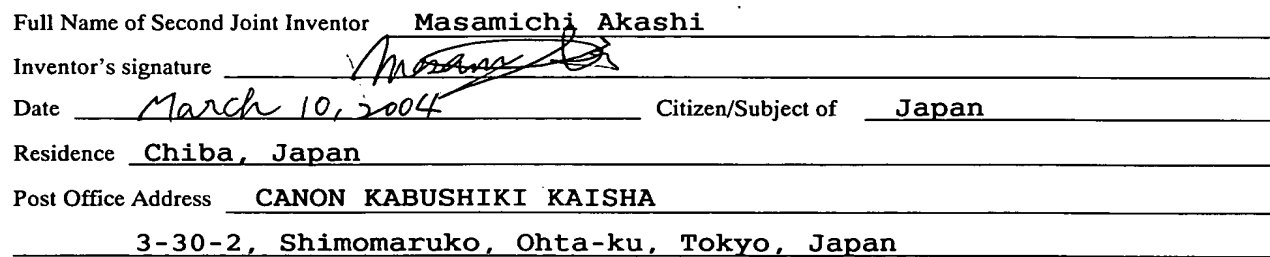 Full Name of Second Joint Inventor Masamichi Akashi
Inventor's signature
Date March 10, 2004 Citizen/Subject of Japan
Residence Chiba, Japan
Post Office Address CANON KABUSHIKI KAISHA
3-30-2, Shimomaruko, Ohta-ku, Tokyo, Japan